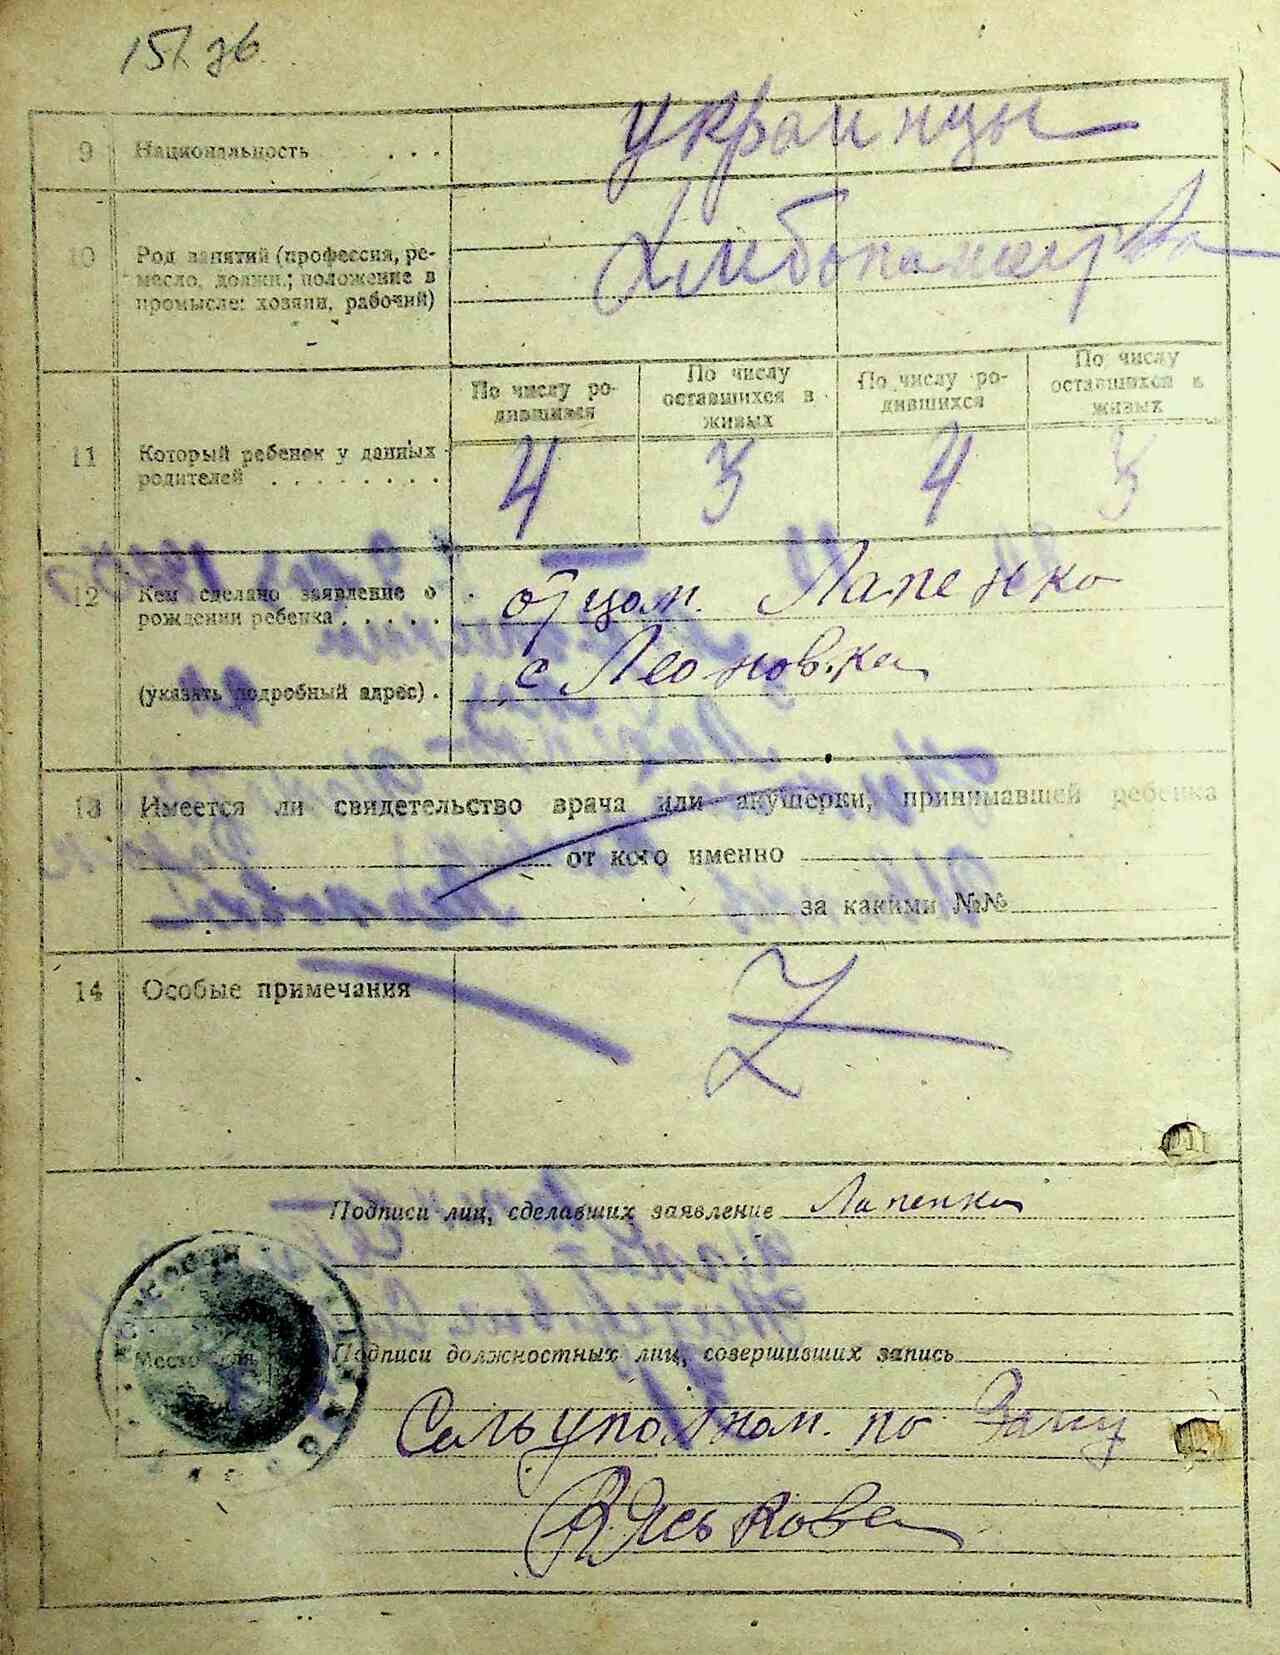 151 зб.
9 Национальность . . . украинцы
10 Род занятий (профессия, ре-
месло, должн.; положение в
промысле: хозяин, рабочий)
По числу ро-
дившимся
По числу
оставшихся в
живых
По числу ро-
дившихся
По числу
оставшихся в
живых
11 Который ребенок у данных
родителей . . . . . . . .
4 3 4 3
12 Кем сделано заявление о
рождении ребенка . . . . .
(указать подробный адрес) .
отцом. Лапенко
с Леоновка
13 Имеется ли свидетельство врача или акушерки, принимавшей ребенка
от кого именно
за какими №№
14 Особые примечания
Z
Подписи лиц, сделавших заявление Лапенко
Место для
Подписи должностных лиц, совершивших запись
Сельуполном. по Загсу